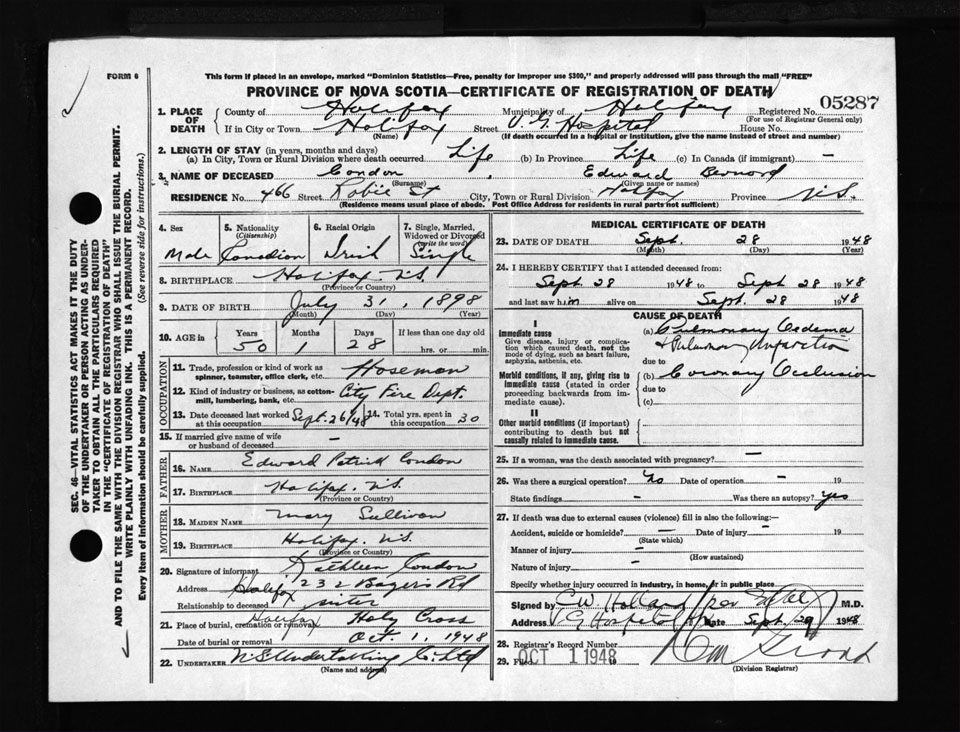 FORM 6
This form if placed in an envelope, marked "Dominion Statistics—Free, penalty for improper use $300," and properly addressed will pass through the mail "FREE"
PROVINCE OF NOVA SCOTIA—CERTIFICATE OF REGISTRATION OF DEATH
05287
SEC. 46—VITAL STATISTICS ACT MAKES IT THE DUTY
OF THE UNDERTAKER OR PERSON ACTING AS UNDER-
TAKER TO OBTAIN ALL THE PARTICULARS REQUIRED
IN THE "CERTIFICATE OF REGISTRATION OF DEATH"
AND TO FILE THE SAME WITH THE DIVISION REGISTRAR WHO SHALL ISSUE THE BURIAL PERMIT.
WRITE PLAINLY WITH UNFADING INK. THIS IS A PERMANENT RECORD.
Every item of Information should be carefully supplied. (See reverse side for instructions.)
1. PLACE OF DEATH
County of Halifax Municipality of Halifax Registered No.
(For use of Registrar General only)
If in City or Town Halifax Street V. G. Hospital House No.
(Name) (If death occurred in a hospital or institution, give the name instead of street and number)
2. LENGTH OF STAY (in years, months and days)
(a) In City, Town or Rural Division where death occurred Life (b) In Province Life (c) In Canada (if immigrant) —
3. NAME OF DECEASED Condon, Edward Bernard
(Surname) (Given name or names)
RESIDENCE No. 466 Street Robie St City, Town or Rural Division Halifax Province N.S.
(Residence means usual place of abode. Post Office Address for residents in rural parts not sufficient)
4. Sex 5. Nationality (Citizenship) 6. Racial Origin 7. Single, Married, Widowed or Divorced (write the word)
Male Canadian Irish Single
8. BIRTHPLACE Halifax N.S.
(Province or Country)
9. DATE OF BIRTH July 31, 1898
(Month) (Day) (Year)
10. AGE in Years Months Days If less than one day old
50 1 28 hrs. or min.
OCCUPATION
11. Trade, profession or kind of work as spinner, teamster, office clerk, etc. Hoseman
12. Kind of industry or business, as cotton-mill, lumbering, bank, etc. City Fire Dept.
13. Date deceased last worked at this occupation Sept. 26/48 14. Total yrs. spent in this occupation 30
15. If married give name of wife or husband of deceased —
FATHER
16. NAME Edward Patrick Condon
17. BIRTHPLACE Halifax N.S.
(Province or Country)
MOTHER
18. MAIDEN NAME Mary Sullivan
19. BIRTHPLACE Halifax N.S.
(Province or Country)
20. Signature of informant Kathleen Condon
Address Halifax 232 Bayers Rd
Relationship to deceased sister
21. Place of burial, cremation or removal Halifax Holy Cross
Date of burial or removal Oct. 1, 1948
22. UNDERTAKER N.S. Undertaking Co. Ltd
(Name and address)
MEDICAL CERTIFICATE OF DEATH
23. DATE OF DEATH Sept. 28 1948
(Month) (Day) (Year)
24. I HEREBY CERTIFY that I attended deceased from:
Sept 28 1948 to Sept 28 1948
and last saw him alive on Sept. 28 1948
CAUSE OF DEATH
I
Immediate cause
Give disease, injury or complication which caused death, not the mode of dying, such as heart failure, asphyxia, asthenia, etc.
(a) Pulmonary Oedema
& Pulmonary Infarction
due to
Morbid conditions, if any, giving rise to immediate cause (stated in order proceeding backwards from immediate cause).
(b) Coronary Occlusion
due to
(c)
II
Other morbid conditions (if important) contributing to death but not causally related to immediate cause.
25. If a woman, was the death associated with pregnancy? —
26. Was there a surgical operation? No Date of operation — 19
State findings — Was there an autopsy? Yes
27. If death was due to external causes (violence) fill in also the following:—
Accident, suicide or homicide? — Date of injury — 19
(State which)
Manner of injury —
(How sustained)
Nature of injury —
Specify whether injury occurred in industry, in home, or in public place
Signed by C W Holland per M.D.
Address V G Hospital Date Sept. 29 1948
28. Registrar's Record Number
29. Filed OCT 1 1948
(Division Registrar)